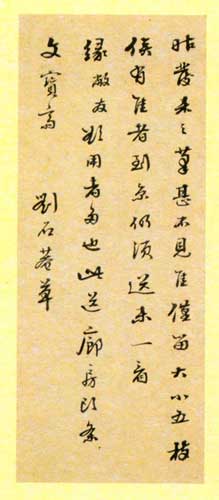 昨發來之筆甚不見佳僅留大小五枝
俟有佳者到京仍須送來一看
緣敝友欲用者多也此送廊房頭條
文寶齋 劉石菴草